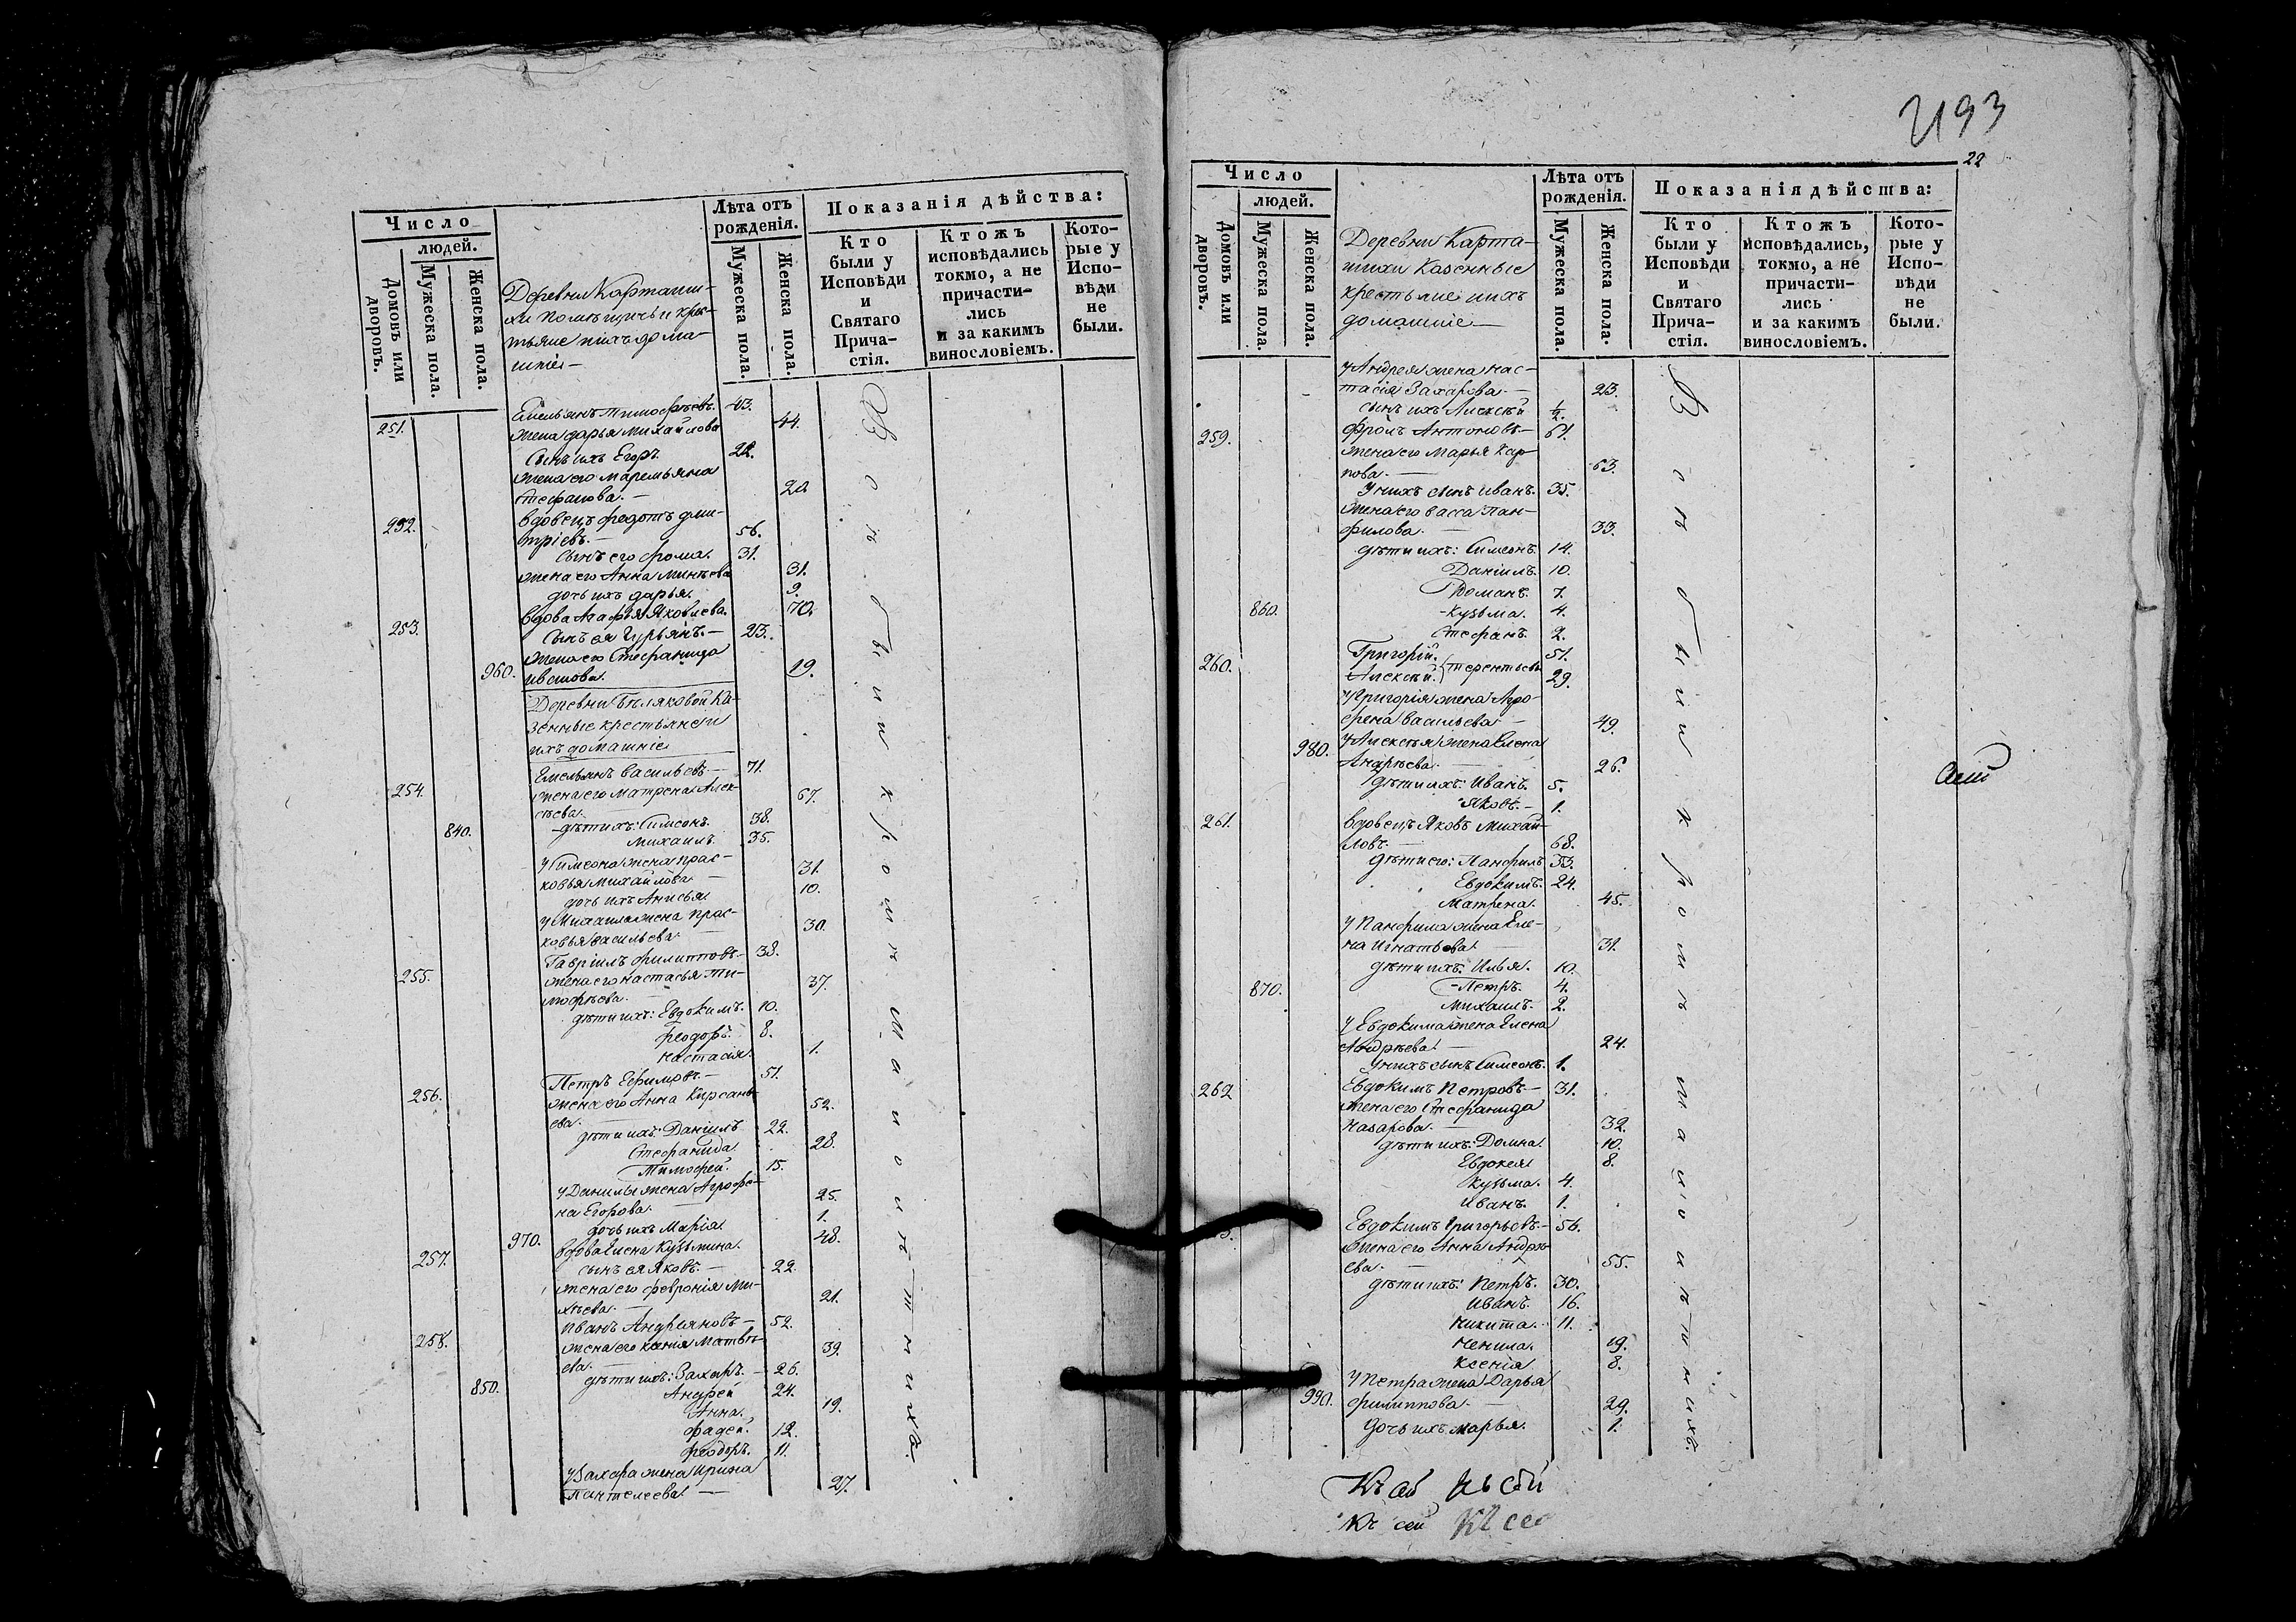 Число
людей.
Домовъ или дворовъ.
Мужеска пола.
Женска пола.
Деревни Карташи-
хи помѣщичьи крес-
тьяне и ихъ дома-
шніе
Лѣта отъ рожденія.
Мужеска пола.
Женска пола.
Показанія дѣйства:
Кто были у Исповѣди и Святаго Прича-стія.
Ктожъ исповѣдались токмо, а не причасти-лись и за какимъ винословіемъ.
Кото-рые у Испо-вѣди не были.
251. Емельянъ Тимофѣевъ. 43.
жена дарья михайлова 44.
Сынъ ихъ Егоръ 22.
жена его маремьяна
Стефанова. 20
252. вдовецъ федотъ дми-
тріевъ. 56.
Сынъ его фома. 31.
жена его Анна Минѣева 31.
дочь ихъ дарья. 9.
253. вдова Агафья Яковлева. 70.
Сынъ ея Гурьянъ. 23.
жена его Стефанида
960. иванова. 19.
Деревни Бѣляковой Ка-
зенные крестьяне и
ихъ домашніе
254. Емельянъ васильевъ 71.
жена его матрена Алек-
сѣева. 67.
840. дѣти ихъ: Симеонъ. 38.
Михаилъ. 35.
у Симеона жена прас-
ковья михайлова 31.
дочь ихъ Анисья. 10.
у Михаила жена прас-
ковья васильева 30.
255. Гавріилъ филипповъ 38.
жена его настасья Ти-
мофѣева. 37.
дѣти ихъ: Евдокимъ. 10.
феодоръ. 8.
настасія. 1.
256. Петръ Ефимовъ. 51.
жена его Анна Кирсань-
ева. 52.
дѣти ихъ: Даніилъ 22.
Стефанида. 28.
Тимофей. 15.
у Данилы жена Агрофе-
на Егорова. 25.
дочь ихъ Марія. 1.
970. 257. вдова Елена Кузьмина. 48.
сынъ ея Яковъ. 22.
жена его февронія Ми-
хѣева. 21.
258. Иванъ Андреяновъ 52.
жена его ксенія Матвѣ-
ева. 39.
дѣти ихъ: Захаръ. 26.
850. Андрей 24.
Анна. 19.
фадей. 12.
феодоръ. 11.
у Захара жена Ирина
Пантелеева. 27.
Въ с ѣ б ы л и к р о м ѣ м а л о л ѣ т н и х ъ.
2193
22
Число
людей.
Домовъ или дворовъ.
Мужеска пола.
Женска пола.
Деревни Карта-
шихи Казенные
крестьяне и ихъ
домашніе
Лѣта отъ рожденія.
Мужеска пола.
Женска пола.
Показанія дѣйства:
Кто были у Исповѣди и Святаго Прича-стія.
Ктожъ исповѣдались, токмо, а не причасти-лись и за какимъ винословіемъ.
Кото-рые у Испо-вѣди не были.
у Андрея жена нас-
тасія Захарова. 23.
сынъ ихъ Алексѣй ½.
259. фролъ Антоновъ 61.
жена его Марья Кар-
пова. 63.
У нихъ сынъ иванъ. 35.
жена его васса Пан-
филова. 33.
дѣти ихъ: Симеонъ 14.
Даніилъ. 10.
Романъ. 7.
860. Кузьма. 4.
Стефанъ. 2.
260. Григорій. 51.
Алексѣй. терентьевы 29.
у Григорія жена Агро-
фена васильева 49.
980. у Алексѣя жена Елена
Андрѣева. 26.
дѣти ихъ: Иванъ. 5.
Яковъ. 1.
261. вдовецъ Яковъ Михай-
ловъ 68.
дѣти его: Панфилъ 33.
Евдокимъ. 24.
Матрена. 45.
у Панфила жена Еле-
на Игнатьева 31.
дѣти ихъ: Илья. 10.
870. Петръ. 4.
Михаилъ. 2.
у Евдокима жена Елена
Андрѣева 24.
у нихъ сынъ Симеонъ. 1.
262 Евдокимъ Петровъ 31.
жена его Стефанида
Назарова. 32.
дѣти ихъ: Домна. 10.
Евдокея 8.
Кузьма. 4.
Иванъ. 1.
Евдокимъ Григорьевъ 56.
жена его Анна Андрѣ-
ева. 55.
дѣти ихъ: Петръ. 30.
Иванъ. 16.
никита. 11.
ненила. 19.
Ксенія 8.
у Петра жена Дарья
990. филиппова. 29.
дочь ихъ марья. 1.
Въ с ѣ б ы л и к р о м ѣ м а л о л ѣ т н и х ъ.
Къ сей